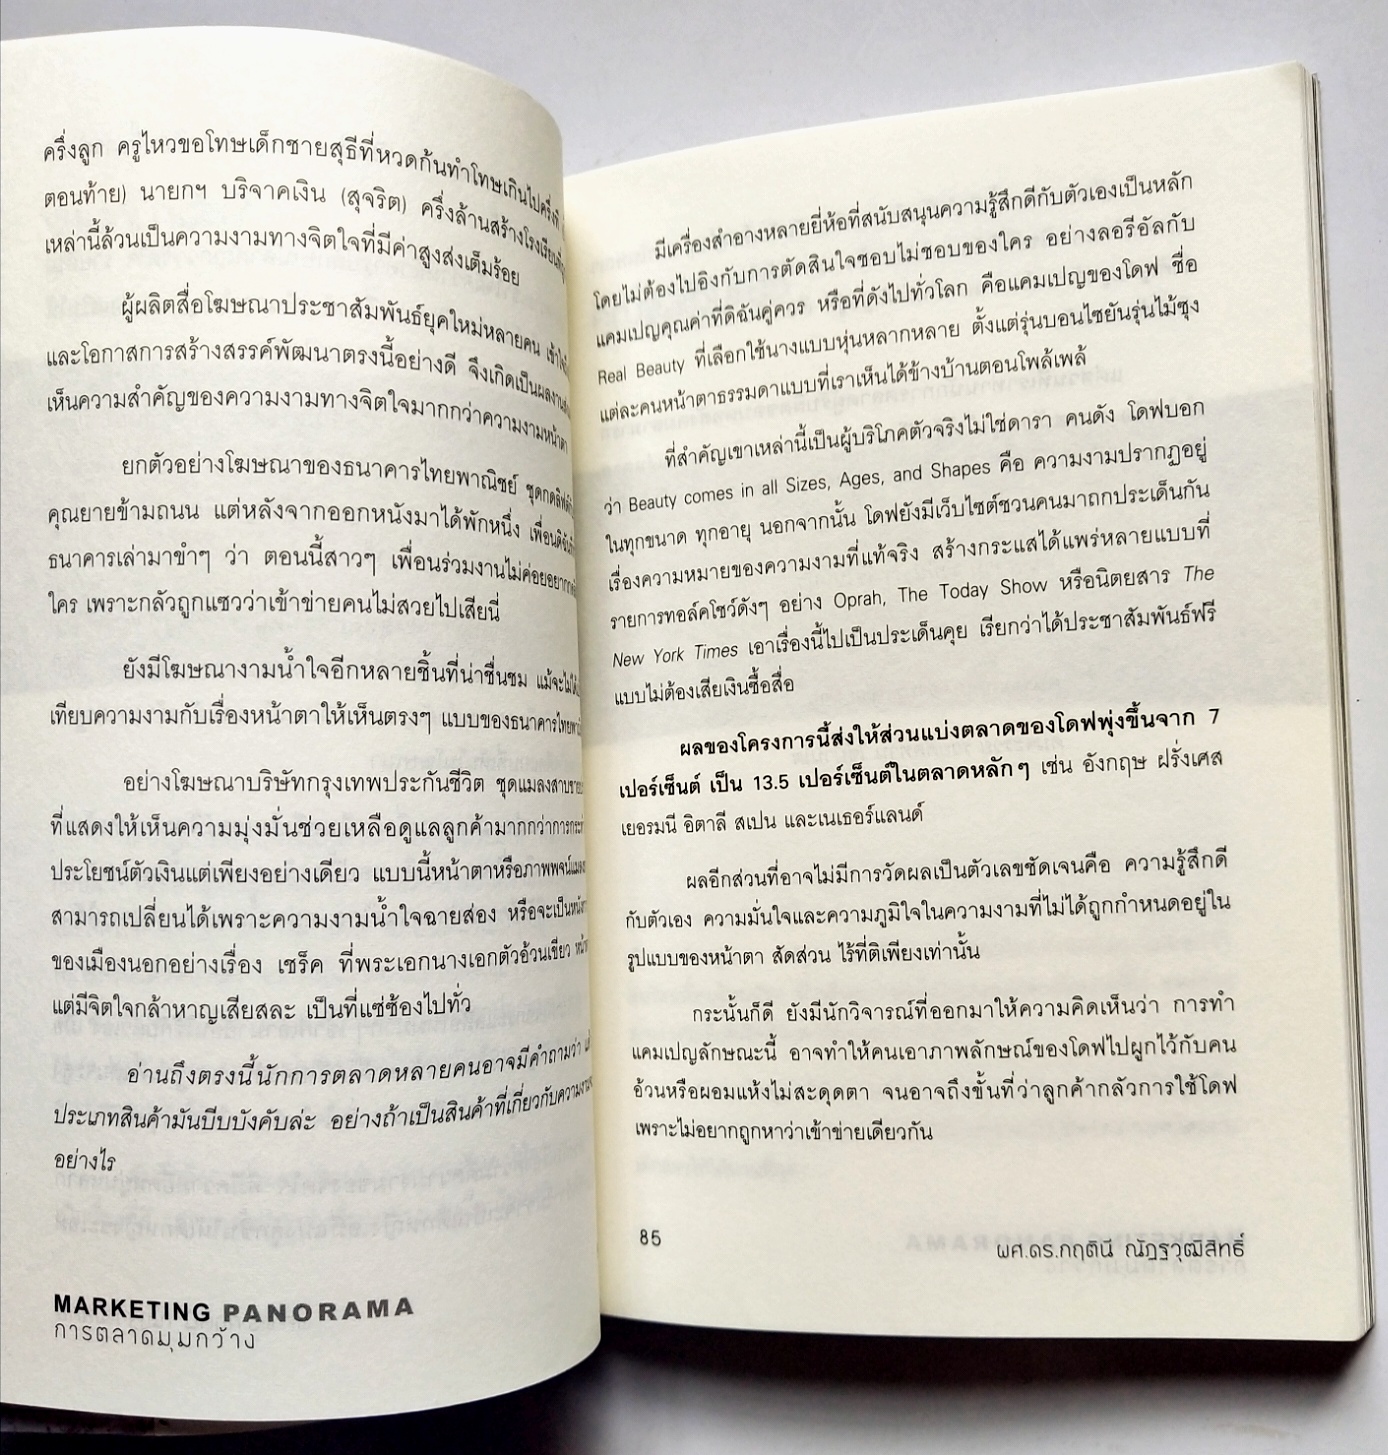 ครึ่งลูก ครูไหวขอโทษเด็กชายสุธีที่หวดก้นทำโทษเกินไปครึ่งที
ตอนท้าย) นายกฯ บริจาคเงิน (สุจริต) ครึ่งล้านสร้างโรงเรียน
เหล่านี้ล้วนเป็นความงามทางจิตใจที่มีค่าสูงส่งเต็มร้อย
ผู้ผลิตสื่อโฆษณาประชาสัมพันธ์ยุคใหม่หลายคน
และโอกาสการสร้างสรรค์พัฒนาตรงนี้อย่างดี จึงเกิดเป็นผลงาน
เห็นความสำคัญของความงามทางจิตใจมากกว่าความงามหน้าตา
ยกตัวอย่างโฆษณาของธนาคารไทยพาณิชย์ ชุดกดลิฟต์
คุณยายข้ามถนน แต่หลังจากออกหนังมาได้พักหนึ่ง
ธนาคารเล่ามาขำๆ ว่า ตอนนี้สาวๆ เพื่อนร่วมงานไม่ค่อยอยาก
ใคร เพราะกลัวถูกแซวว่าเข้าข่ายคนไม่สวยไปเสียนี่
ยังมีโฆษณางามน้ำใจอีกหลายชิ้นที่น่าชื่นชม แม้จะไม่ได้
เทียบความงามกับเรื่องหน้าตาให้เห็นตรงๆ แบบของธนาคารไทย
อย่างโฆษณาบริษัทกรุงเทพประกันชีวิต ชุดแมลงสาบ
ที่แสดงให้เห็นความมุ่งมั่นช่วยเหลือดูแลลูกค้ามากกว่าการ
ประโยชน์ตัวเงินแต่เพียงอย่างเดียว แบบนี้หน้าตาหรือภาพพจน์
สามารถเปลี่ยนได้เพราะความงามน้ำใจฉายส่อง หรือจะเป็นหนัง
ของเมืองนอกอย่างเรื่อง เชร็ค ที่พระเอกนางเอกตัวอ้วนเขียว
แต่มีจิตใจกล้าหาญเสียสละ เป็นที่แซ่ซ้องไปทั่ว
อ่านถึงตรงนี้นักการตลาดหลายคนอาจมีคำถามว่า
ประเภทสินค้ามันบีบบังคับล่ะ อย่างถ้าเป็นสินค้าที่เกี่ยวกับความงาม
อย่างไร
MARKETING PANORAMA
การตลาดมุมกว้าง
มีเครื่องสำอางหลายยี่ห้อที่สนับสนุนความรู้สึกดีกับตัวเองเป็นหลัก
โดยไม่ต้องไปอิงกับการตัดสินใจชอบไม่ชอบของใคร อย่างลอรีอัลกับ
แคมเปญคุณค่าที่ดิฉันคู่ควร หรือที่ดังไปทั่วโลก คือแคมเปญของโดฟ ชื่อ
Real Beauty ที่เลือกใช้นางแบบหุ่นหลากหลาย ตั้งแต่รุ่นบอนไซยันรุ่นไม้ซุง
แต่ละคนหน้าตาธรรมดาแบบที่เราเห็นได้ข้างบ้านตอนโพล้เพล้
ที่สำคัญเขาเหล่านี้เป็นผู้บริโภคตัวจริงไม่ใช่ดารา คนดัง โดฟบอก
ว่า Beauty comes in all Sizes, Ages, and Shapes คือ ความงามปรากฏอยู่
ในทุกขนาด ทุกอายุ นอกจากนั้น โดฟยังมีเว็บไซต์ชวนคนมาถกประเด็นกัน
เรื่องความหมายของความงามที่แท้จริง สร้างกระแสได้แพร่หลายแบบที่
รายการทอล์คโชว์ดังๆ อย่าง Oprah, The Today Show หรือนิตยสาร The
New York Times เอาเรื่องนี้ไปเป็นประเด็นคุย เรียกว่าได้ประชาสัมพันธ์ฟรี
แบบไม่ต้องเสียเงินซื้อสื่อ
ผลของโครงการนี้ส่งให้ส่วนแบ่งตลาดของโดฟพุ่งขึ้นจาก 7
เปอร์เซ็นต์ เป็น 13.5 เปอร์เซ็นต์ในตลาดหลักๆ เช่น อังกฤษ ฝรั่งเศส
เยอรมนี อิตาลี สเปน และเนเธอร์แลนด์
ผลอีกส่วนที่อาจไม่มีการวัดผลเป็นตัวเลขชัดเจนคือ ความรู้สึกดี
กับตัวเอง ความมั่นใจและความภูมิใจในความงามที่ไม่ได้ถูกกำหนดอยู่ใน
รูปแบบของหน้าตา สัดส่วน ไร้ที่ติเพียงเท่านั้น
กระนั้นก็ดี ยังมีนักวิจารณ์ที่ออกมาให้ความคิดเห็นว่า การทำ
แคมเปญลักษณะนี้ อาจทำให้คนเอาภาพลักษณ์ของโดฟไปผูกไว้กับคน
อ้วนหรือผอมแห้งไม่สะดุดตา จนอาจถึงขั้นที่ว่าลูกค้ากลัวการใช้โดฟ
เพราะไม่อยากถูกหาว่าเข้าข่ายเดียวกัน
85
ผศ.ดร.กฤตินี ณัฏฐวุฒิสิทธิ์